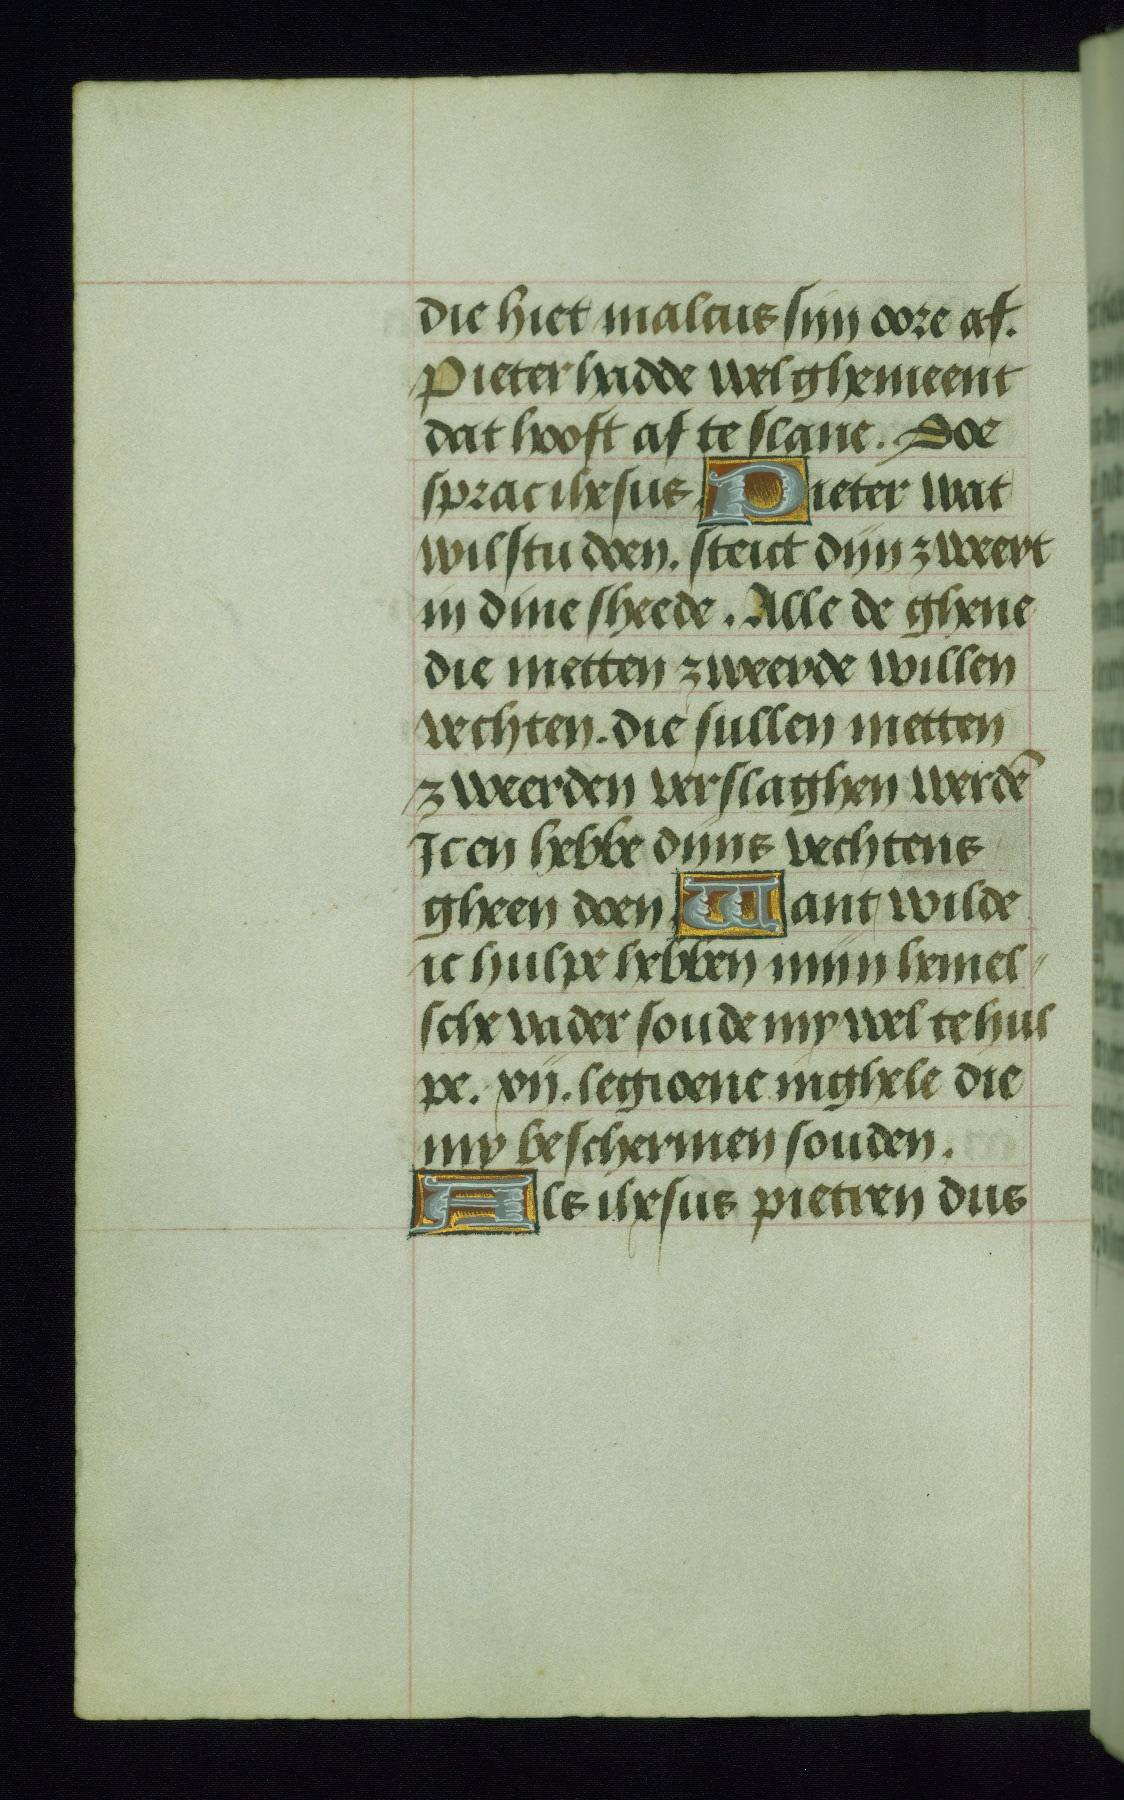 die hiet malcus sijn oore af.
Pieter hadde wel ghemeent
dat hooft af te slane. Doe
sprac ihesus Pieter wat
wilstu doen. steict dijn zweert
in dine sheede. Alle de ghene
die metten zweerde willen
vechten. die sullen metten
zweerden verslaghen werdē
Ic en hebbe dijns vechtens
gheen doen Want wilde
ic hulpe hebben mijn hemel-
sche vader soude my wel te hul
pe. xij. legioene inghele die
my beschermen souden.
Als ihesus pietren dus